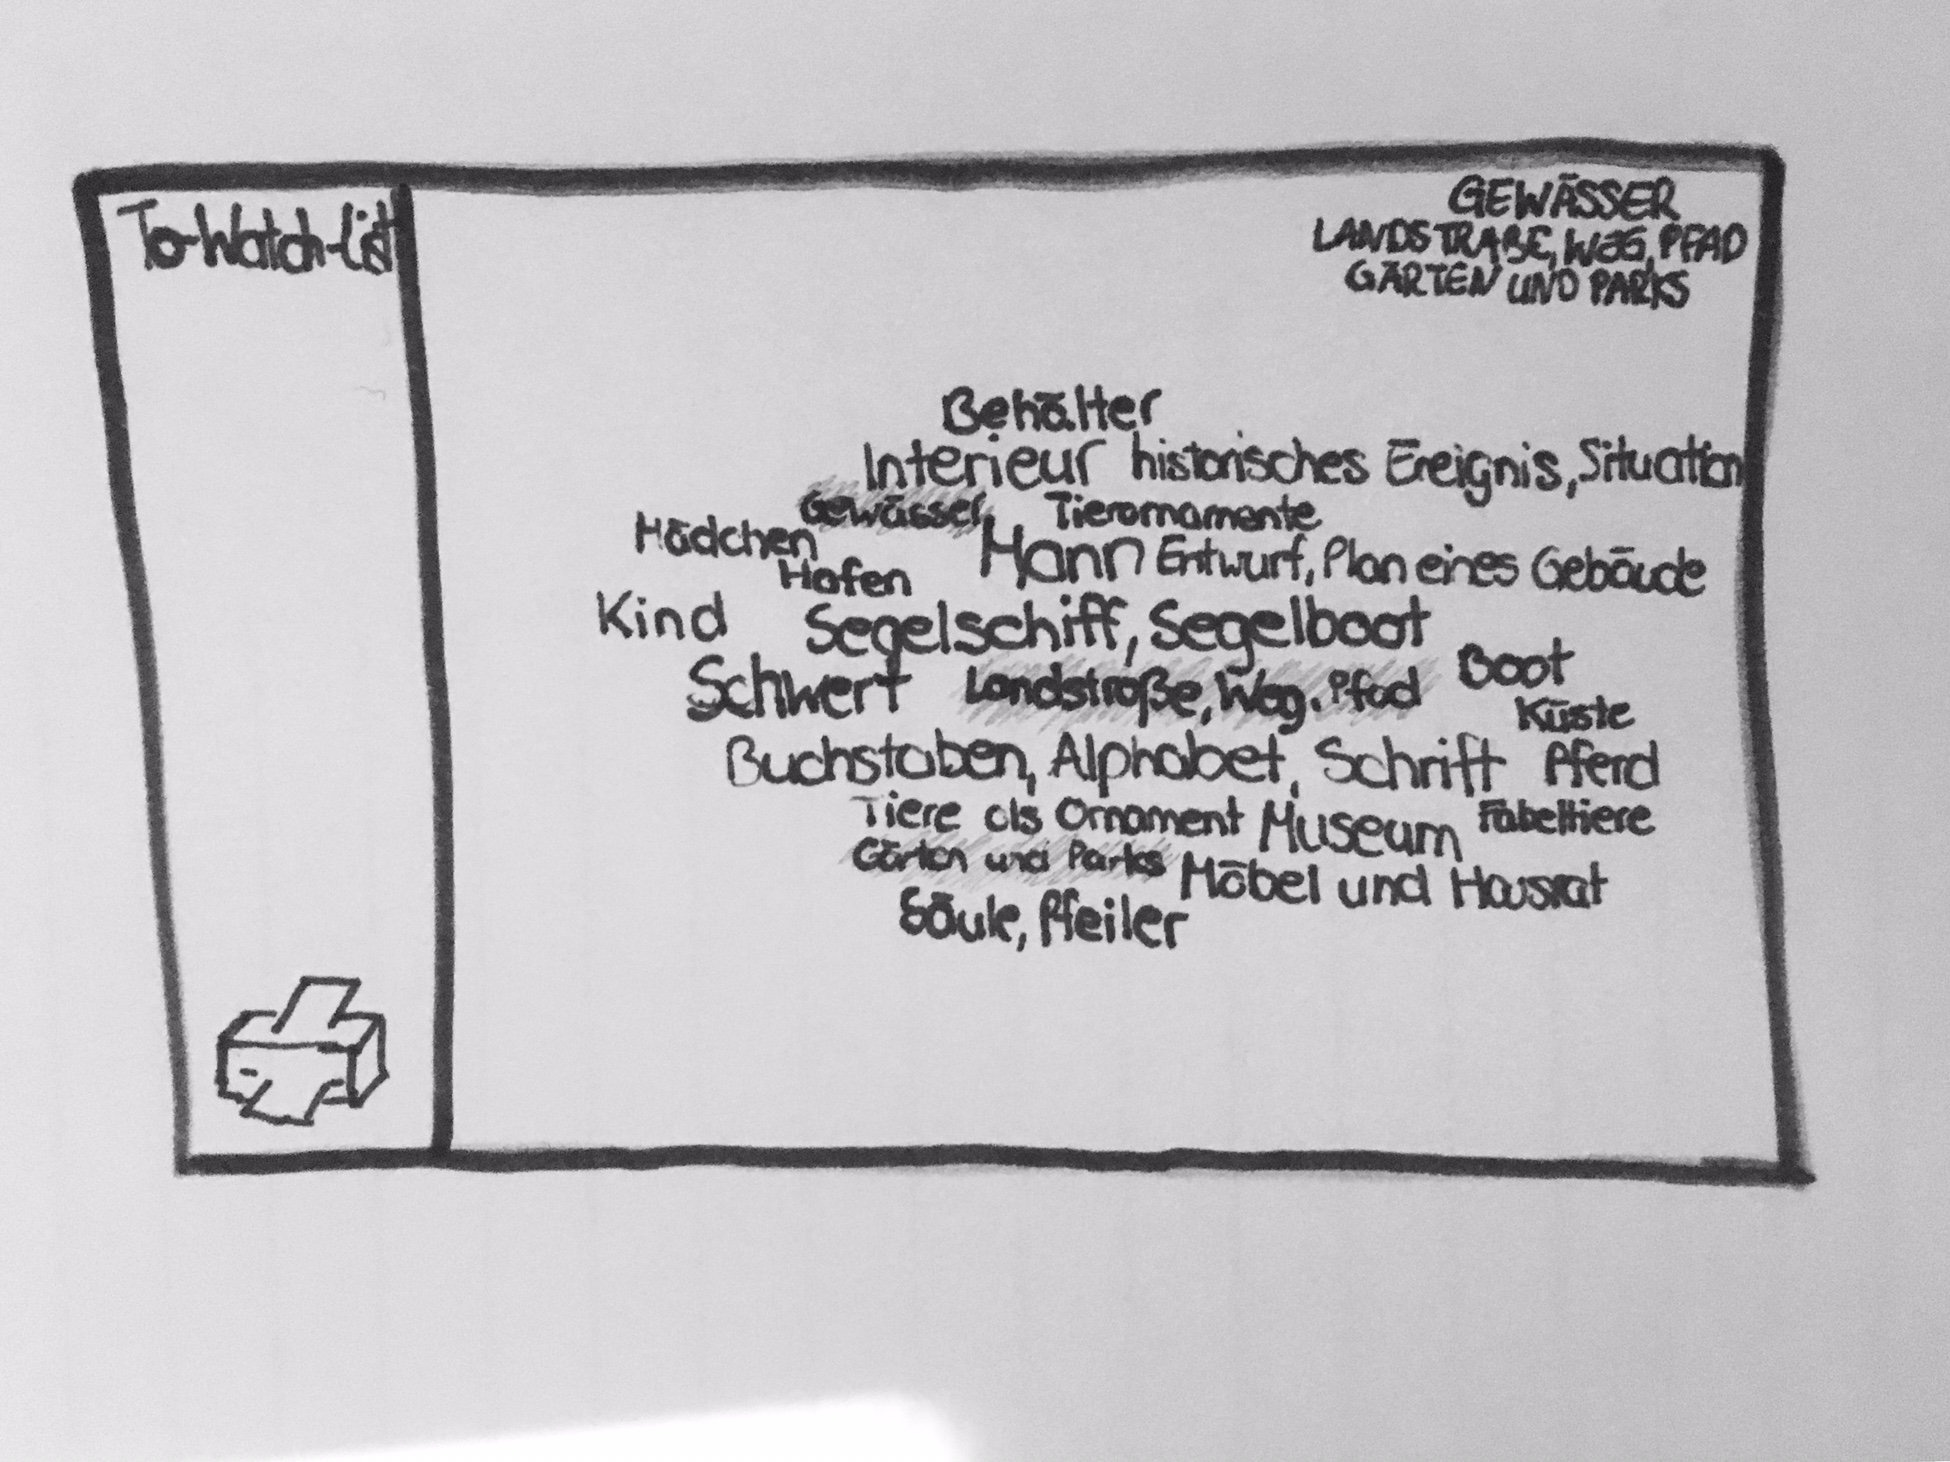 To-Watch-List
GEWÄSSER
LANDSTRAßE, WEG, PFAD
GÄRTEN UND PARKS
Behälter
Interieur historisches Ereignis, Situation
Gewässer Tierornamente
Mädchen Mann Entwurf, Plan eines Gebäude
Hafen
Kind Segelschiff, Segelboot
Schwert Landstraße, Weg. Pfad Boot
Küste
Buchstaben, Alphabet, Schrift Pferd
Tiere als Ornament Museum Fabeltiere
Gärten und Parks Möbel und Hausrat
Säule, Pfeiler